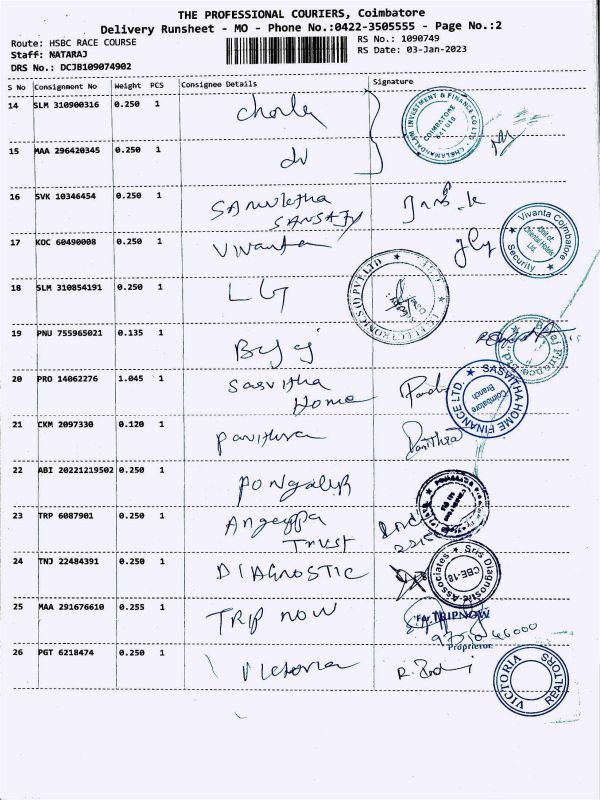 THE PROFESSIONAL COURIERS, Coimbatore
Delivery Runsheet - MO - Phone No.:0422-3505555 - Page No.:2
Route: HSBC RACE COURSE
Staff: NATARAJ
DRS No.: DCJB109074902
RS No.: 1090749
RS Date: 03-Jan-2023
S No Consignment No Weight PCS Consignee Details Signature
14 SLM 310900316 0.250 1
CHOLAMANDALAM INVESTMENT & FINANCE CO LTD
COIMBATORE
15 MAA 296420345 0.250 1
16 SVK 10346454 0.250 1
17 KOC 60490008 0.250 1 Vivanta
Vivanta Coimbatore
Unit of:
Oriental Hotels
Ltd.
Security
18 SLM 310854191 0.250 1 LG
19 PNU 755965021 0.135 1 Bajaj
20 PRO 14062276 1.045 1 Sasvitha
Home
SASVITHA HOME FINANCE LTD.
Coimbatore
Branch
21 CKM 2097330 0.120 1 Pavithra Pavithra
22 ABI 20221219502 0.250 1 PONgalur
23 TRP 6087901 0.250 1 Angeyppa
Trust
24 TNJ 22484391 0.250 1 DIAGNOSTIC
Sris Diagnostic Associates
CBE-18
25 MAA 291676610 0.255 1 TRIP NOW
For TRIPNOW
Proprietor
26 PGT 6218474 0.250 1 Victoria
VICTORIA REALTORS